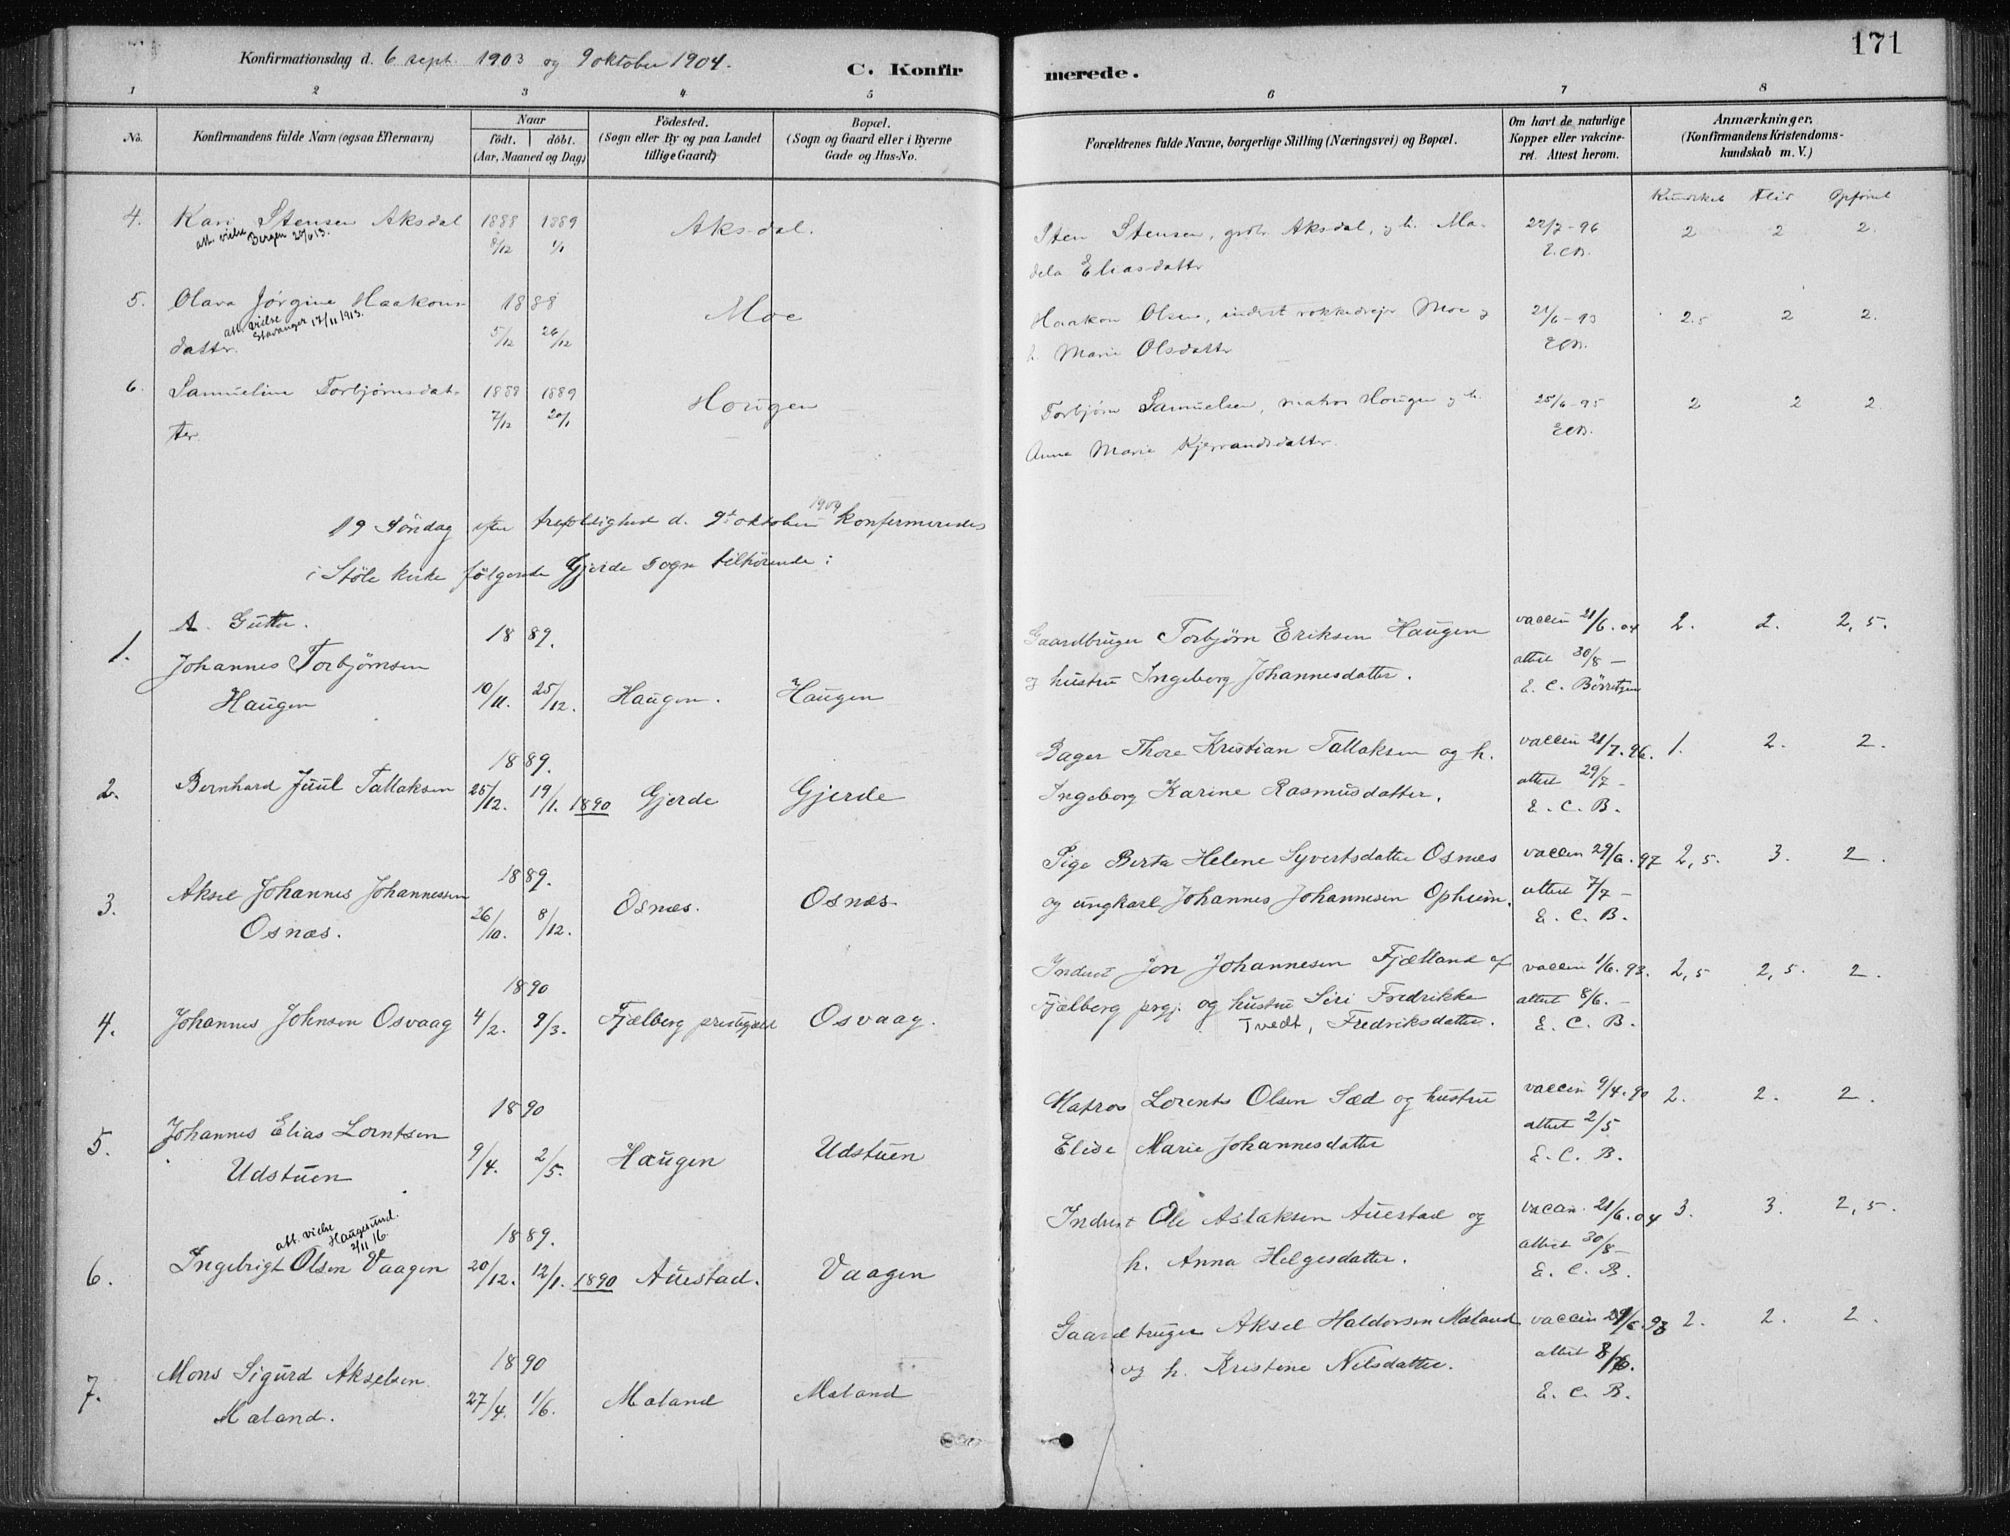 171
Konfirmationsdag d. 6 sept. 1903 og 9 oktober 1904.
C. Konfirmerede.
1 2 3 4 5 6 7 8
No.
Konfirmandens fulde Navn (ogsaa Efternavn)
Naar
födt. döbt.
(Aar, Maaned og Dag)
Födested.
(Sogn eller By og paa Landet
tillige Gaard)
Bopæl.
(Sogn og Gaard eller i Byerne
Gade og Hus-No.
Forældrenes fulde Navne, borgerlige Stilling (Næringsvei) og Bopæl.
Om havt de naturlige
Kopper eller vakcine-
ret. Attest herom.
Anmærkninger.
(Konfirmandens Kristendoms-
kundskab m. V.)
Kundskab Flid Opførsel
4. Kari Stensen Aksdal 1888 1889 Aksdal.
att. vielse Bergen
8/12 1/1
Sten Stensen, grdbr. Aksdal, og h. Ma- 22/7-96 2 2 2.
dela Eliasdatter E.C.B.
5. Olava Jørgine Haakons- 1888 Moe
att. vielse
Stavanger 17/11 1913.
datter. 5/12 26/12
Haakon Olsen, inderst rokkedrejer Moe og 21/6-93 2.5 2 2.
h. Marie Olsdatter ECB.
6. Samueline Torbjørnsdat- 1888 1889 Hougen
ter. 7/12 20/1
Torbjørn Samuelsen, matros Hougen og h. 25/6-95 2 2 2
Anna Marie Kjerrandsdatter. ECB.
19 Söndag efter trefoldighed d. 9de oktober 1904 konfirmeredes
i Stöle kirke følgende Gjerde sogn tilhörende:
A. Gutter.
1. Johannes Torbjørnsen 1889.
Haugen 10/11. 25/12. Haugen. Haugen
Gaardbruger Torbjørn Eriksen Haugen vaccin 21/6.04 2. 2. 2,5.
og hustru Ingeborg Johannesdatter. attest 30/8 -
E. C. Börretzen
1889.
2. Bernhard Juul Tallaksen 25/12. 19/1. 1890 Gjerde Gjerde
Bager Thore Kristian Tallaksen og h. vaccin 21/7.96. 1. 2. 2.
Ingeborg Karine Rasmusdatter. attest 29/7 -
E. C. B.
1889.
3. Aksel Johannes Johannessen
Osnæs. 26/10. 8/12. Osnæs. Osnæs.
Pige Berta Helene Syvertsdatter Osnæs vaccin 29/6.97 2,5. 3. 2.
og ungkarl Johannes Johannesen Opheim. attest 7/7 -
E. C. B.
1890
4. Johannes Johnsen Osvaag 4/2. 9/3. Fjælberg prestegjæld Osvaag.
Inderst Jon Johannesen Fjælland af vaccin 1/6.93. 2,5 2,5. 2.
Fjælberg prgj. og hustru Siri Fredrikke attest 8/6. -
Tvedt, Fredriksdatter. E. C. B.
1890
5. Johannes Elias Lorntsen
Udstuen 9/4. 2/5. Haugen Udstuen
Matros Lorents Olsen Sæd og hustru vaccin 9/4.90 2. 2. 2.
Elise Marie Johannesdatter attest 2/5
E. C. B.
att. vielse Haugesund.
2/11 16.
1889.
6. Ingebrigt Olsen Vaagen 20/12. 12/1. 1890 Auestad. Vaagen
Inderst Ole Aslaksen Auestad og vaccin. 21/6.04 3. 3. 2,5.
h. Anna Helgesdatter. attest 30/8 -
E. C. B.
1890
7. Mons Sigurd Akselsen
Mæland. 27/4. 1/6. Mæland Mæland
Gaardbruger Aksel Haldorsen Mæland vaccin 2. 2. 2.
og h. Kristine Nilsdatter. attest
E. C. B.